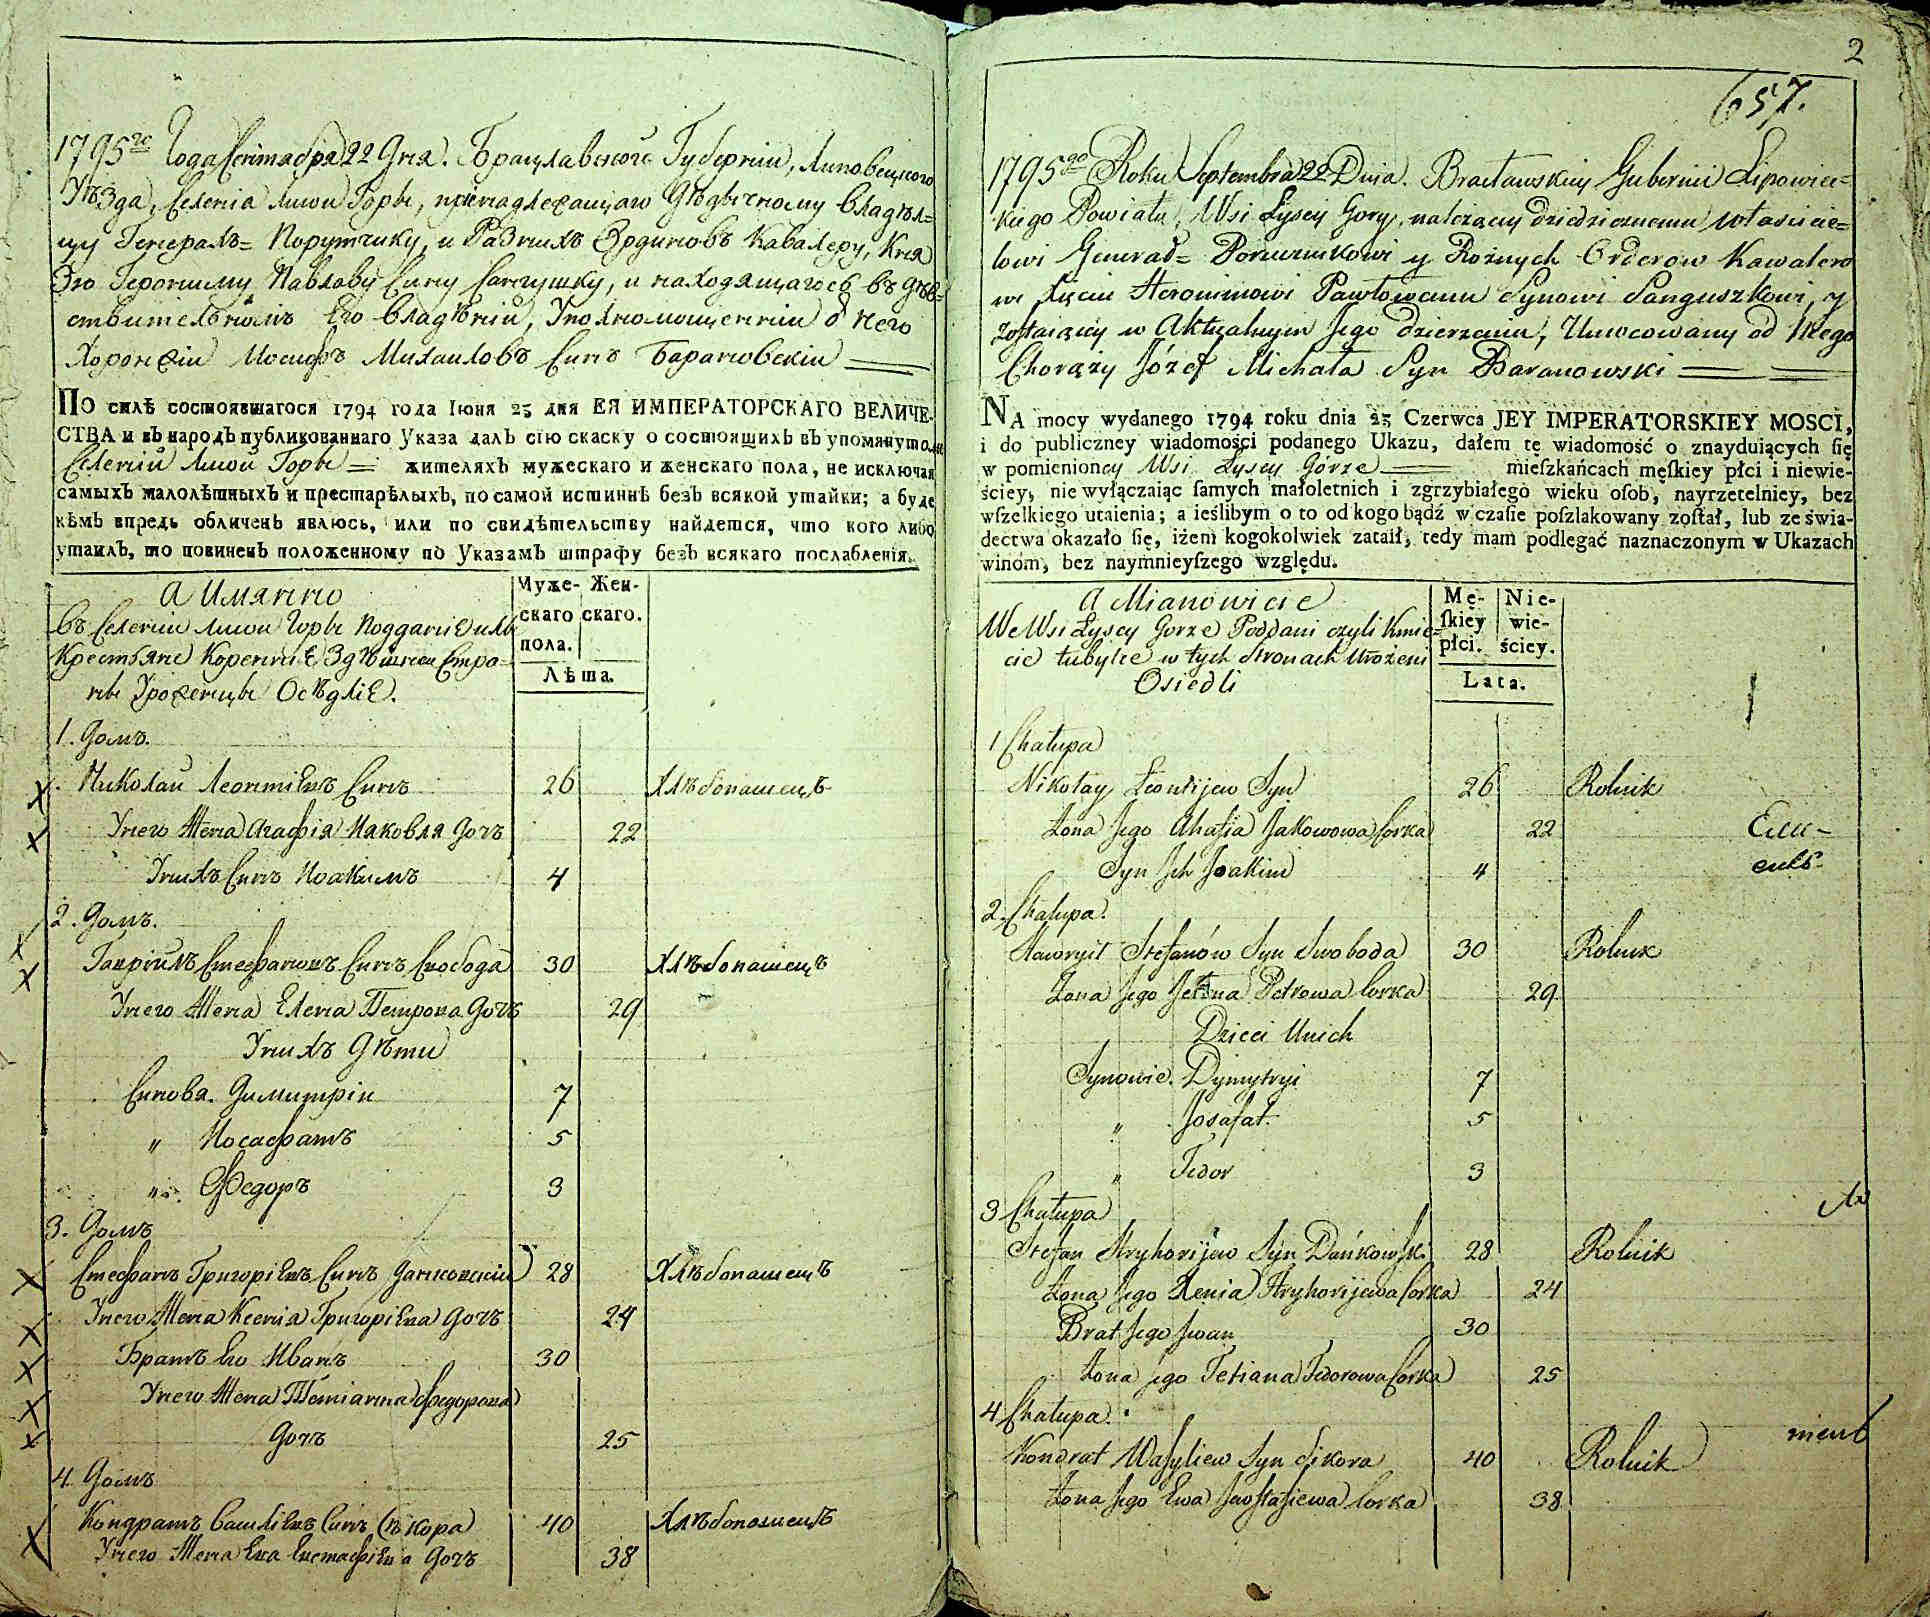 1795го Года Септемвра 22 Дня. Брацлавской Губернии, Липовецкого
Уѣзда, Селенія Лисои Горы, принадлежащаго Дѣдычному Владѣл=
цу Генералъ= Порутчику, и Разныхъ Ординовъ Кавалеру, Кня
Зю Герониму Павлову Сину Сангушку, и находящагось въ дѣй=
ствительномъ Его Владѣнии, Уполномощенний о Него
Хоронжіи Иосифъ Михаиловъ Синъ Барановскіи
ПО силѣ состоявшагося 1794 года Іюня 23 дня ЕЯ ИМПЕРАТОРСКАГО ВЕЛИЧЕ-
СТВА и въ народъ публикованнаго Указа далъ сію скаску о состоящихъ въ упомянутомъ
Селении Лисои Горы = жителяхъ мужескаго и женскаго пола, не исключая
самыхъ малолѣтныхъ и престарѣлыхъ, по самой истиннѣ безъ всякой утайки; а буде
кѣмъ впредь обличенъ явлюсь, или по свидѣтельству найдется, что кого либо
утаилъ, то повиненъ положенному по Указамъ штрафу безъ всякаго послабленія.
а Имянно
Муже-
скаго
пола.
Жен-
скаго.
Лѣта.
Въ Селении Лисои Горы Поддание или
Крестьяне Коренние Здѣшнеи Стро=
ны Уроженцы Осѣдліе.
1. Домъ.
Николаи Леонтіевъ Синъ 26 Хлѣбопашецъ
Унего Жена Агафія Иаковля Дочъ 22
Унихъ Синъ Иоакимъ 4
2. Домъ.
Гавріилъ Стефановъ Синъ Свобода 30 Хлѣбопашецъ
Унего Жена Елена Петрова Дочъ 29
Унихъ Дѣти
Синовя. Димитріи 7
" Иосафатъ 5
" Федоръ 3
3. Домъ
Стефанъ Григоріевъ Синъ Данковскіи 28 Хлѣбопашецъ
Унего Жена Ксенія Григоріева Дочъ 24
Братъ Его Иванъ 30
Унего Жена Тетіанна Федорова
Дочъ 25
4. Домъ
Кондратъ Василіевъ Синъ Сѣкора 40 Хлѣбопашецъ
Унего Жена Ева Евстафіева Дочъ 38
2
657.
1795go Roku Septembra 22 Dnia. Bracławskiey Gubernii Lipowiec=
kiego Powiatu, Wsi Łysey Gory, należącey Dziedzicznemu Właścicie=
lowi Generał= Porucznikowi y Rożnych Orderow Kawalero
wi Xięciu Heronimowi Pawłowemu Synowi Sanguszkowi, y
zostaiącey w Aktualnym Jego dzierżeniu, Umocowany od Niego
Chorąży Józef Michała Syn Baranowski
NA mocy wydanego 1794 roku dnia 23 Czerwca JEY IMPERATORSKIEY MOSCI,
i do publiczney wiadomości podanego Ukazu, dałem tę wiadomość o znayduiących się
w pomienioney Wsi Łysey Górze mieſzkańcach męſkiey płci i niewie-
ściey, nie wyłączaiąc ſamych małoletnich i zgrzybiałego wieku oſob, nayrzetelniey, bez
wſzelkiego utaienia; a ieślibym o to od kogo bądź w czaſie poſzlakowany zoſtał, lub ze świa-
dectwa okazało ſię, iżem kogokolwiek zataił, tedy mam podlegać naznaczonym w Ukazach
winom, bez naymnieyſzego względu.
A Mianowicie
Mę-
ſkiey
płci.
Nie-
wie-
ściey.
Lata.
We Wsi Łysey Gorze Poddani czyli Kmie=
cie tubylce w tych Stronach Urożeni
Osiedli
1 Chałupa
Nikołay Leontijew Syn 26 Rolnik
Żona Jego Ahafia Jakowowa Corka 22
Syn Jch Joakim 4
2. Chałupa.
Hawryił Stefanów Syn Swoboda 30 Rolnik
Żona Jego Jełena Petrowa Corka 29
Dzieci Unich
Synowie. Dymytryi 7
" Josafat. 5
" Fedor 3
3 Chałupa
Stefan Hryhorijew Syn Dańkowski 28 Rolnik
Żona Jego Xenia Hryhorijewa Corka 24
Brat Jego Jwan 30
Żona jego Tetiana Fedorowa Corka 25
4 Chałupa.
Kondrat Wasyliew Syn Sikora 40 Rolnik
Żona Jego Ewa Jewstafiewa Corka 38